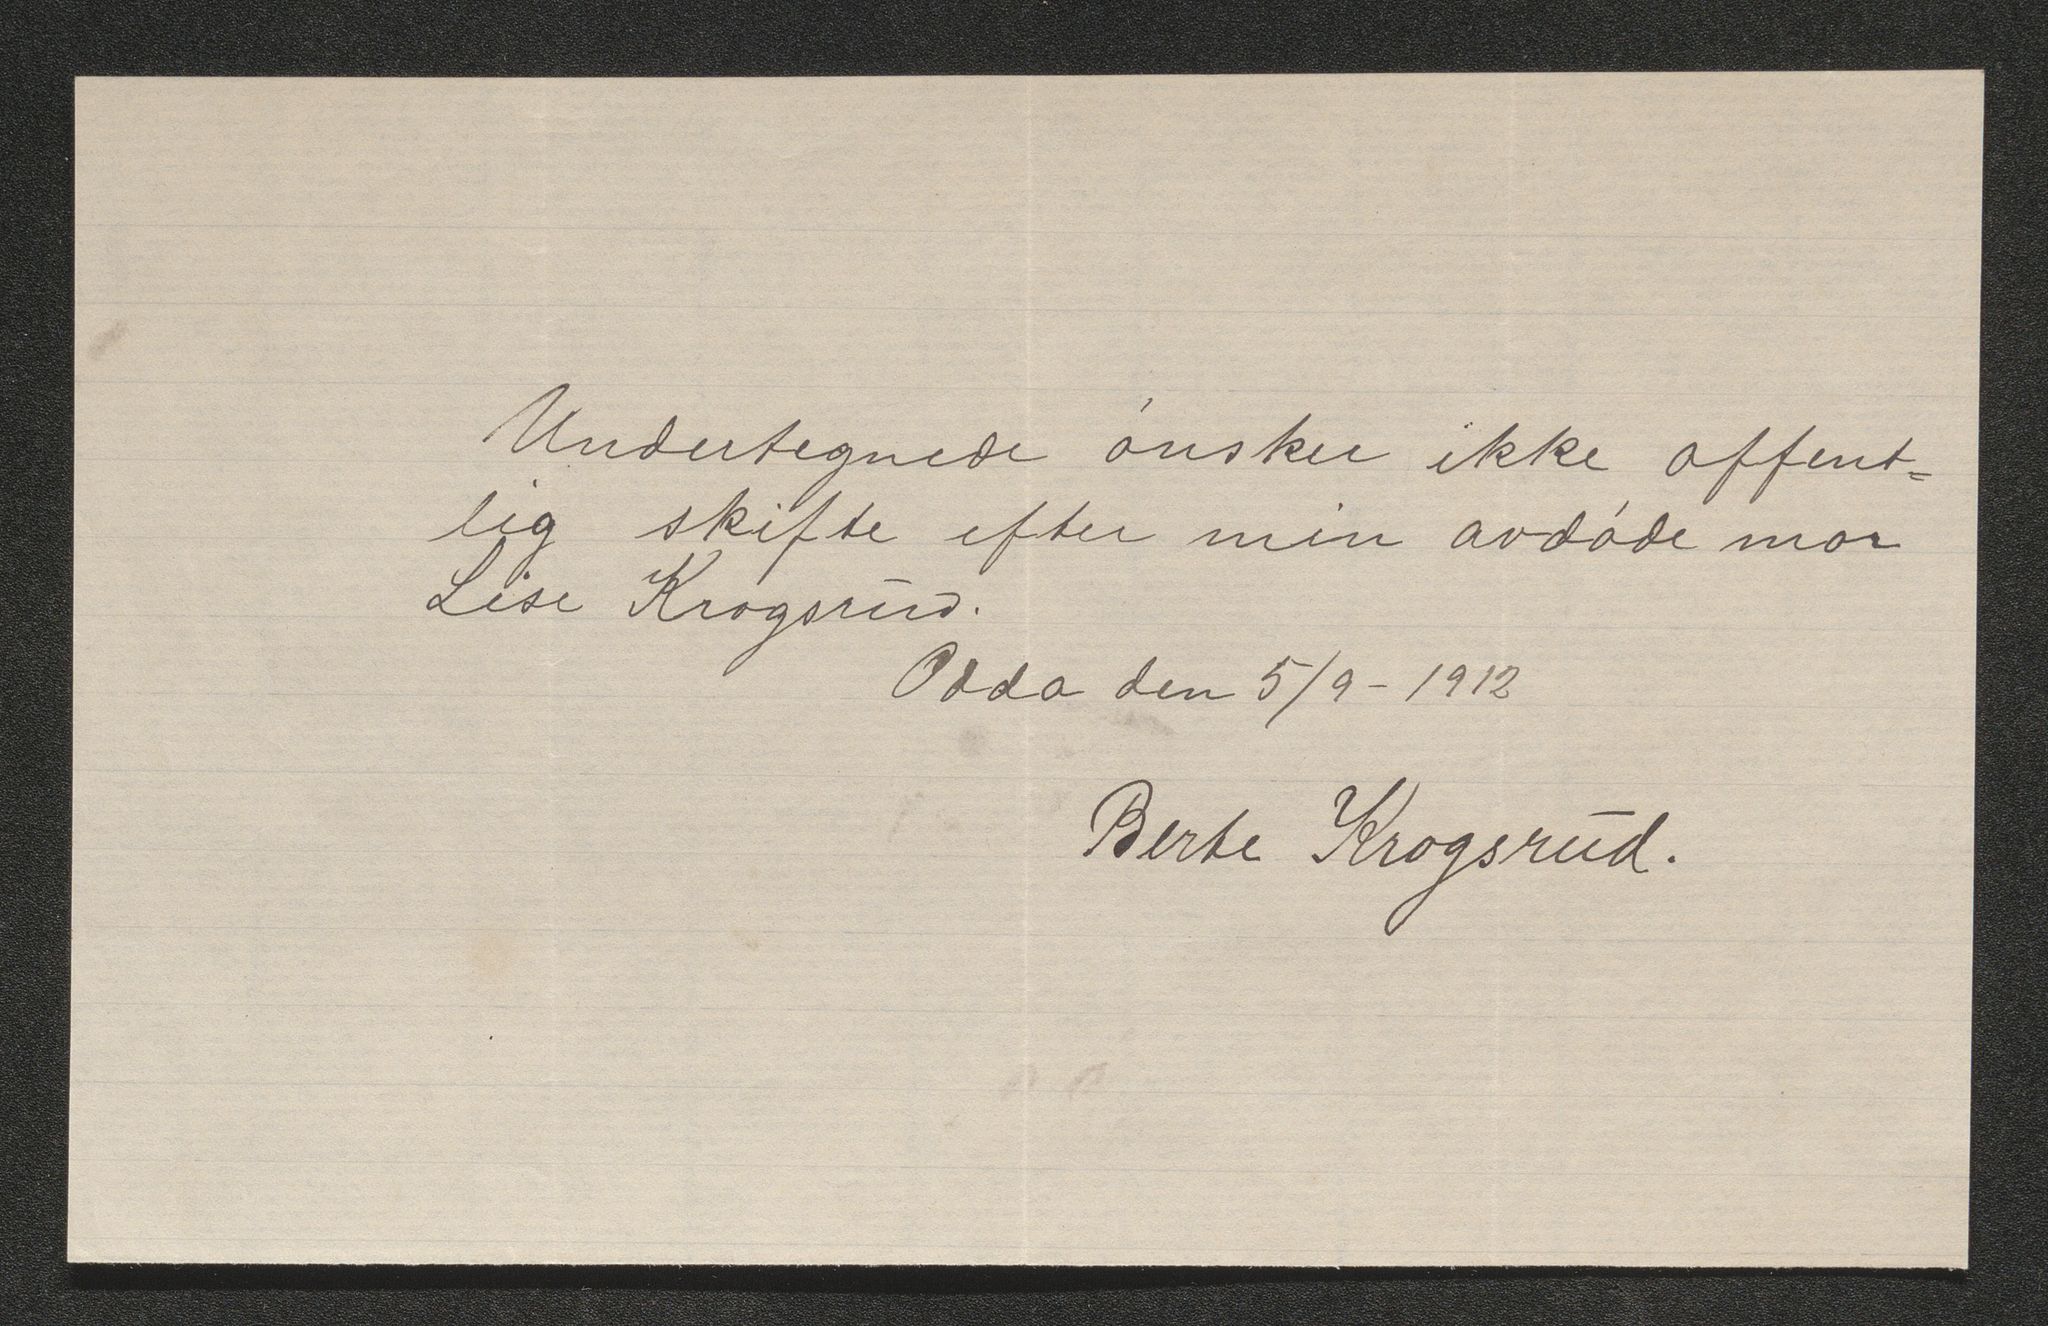 Undertegnede ónsker ikke offent=
lig skifte efter min avdóde mor
Lise Krogsrud.
Odda den 5/9 - 1912
Berte Krogsrud.